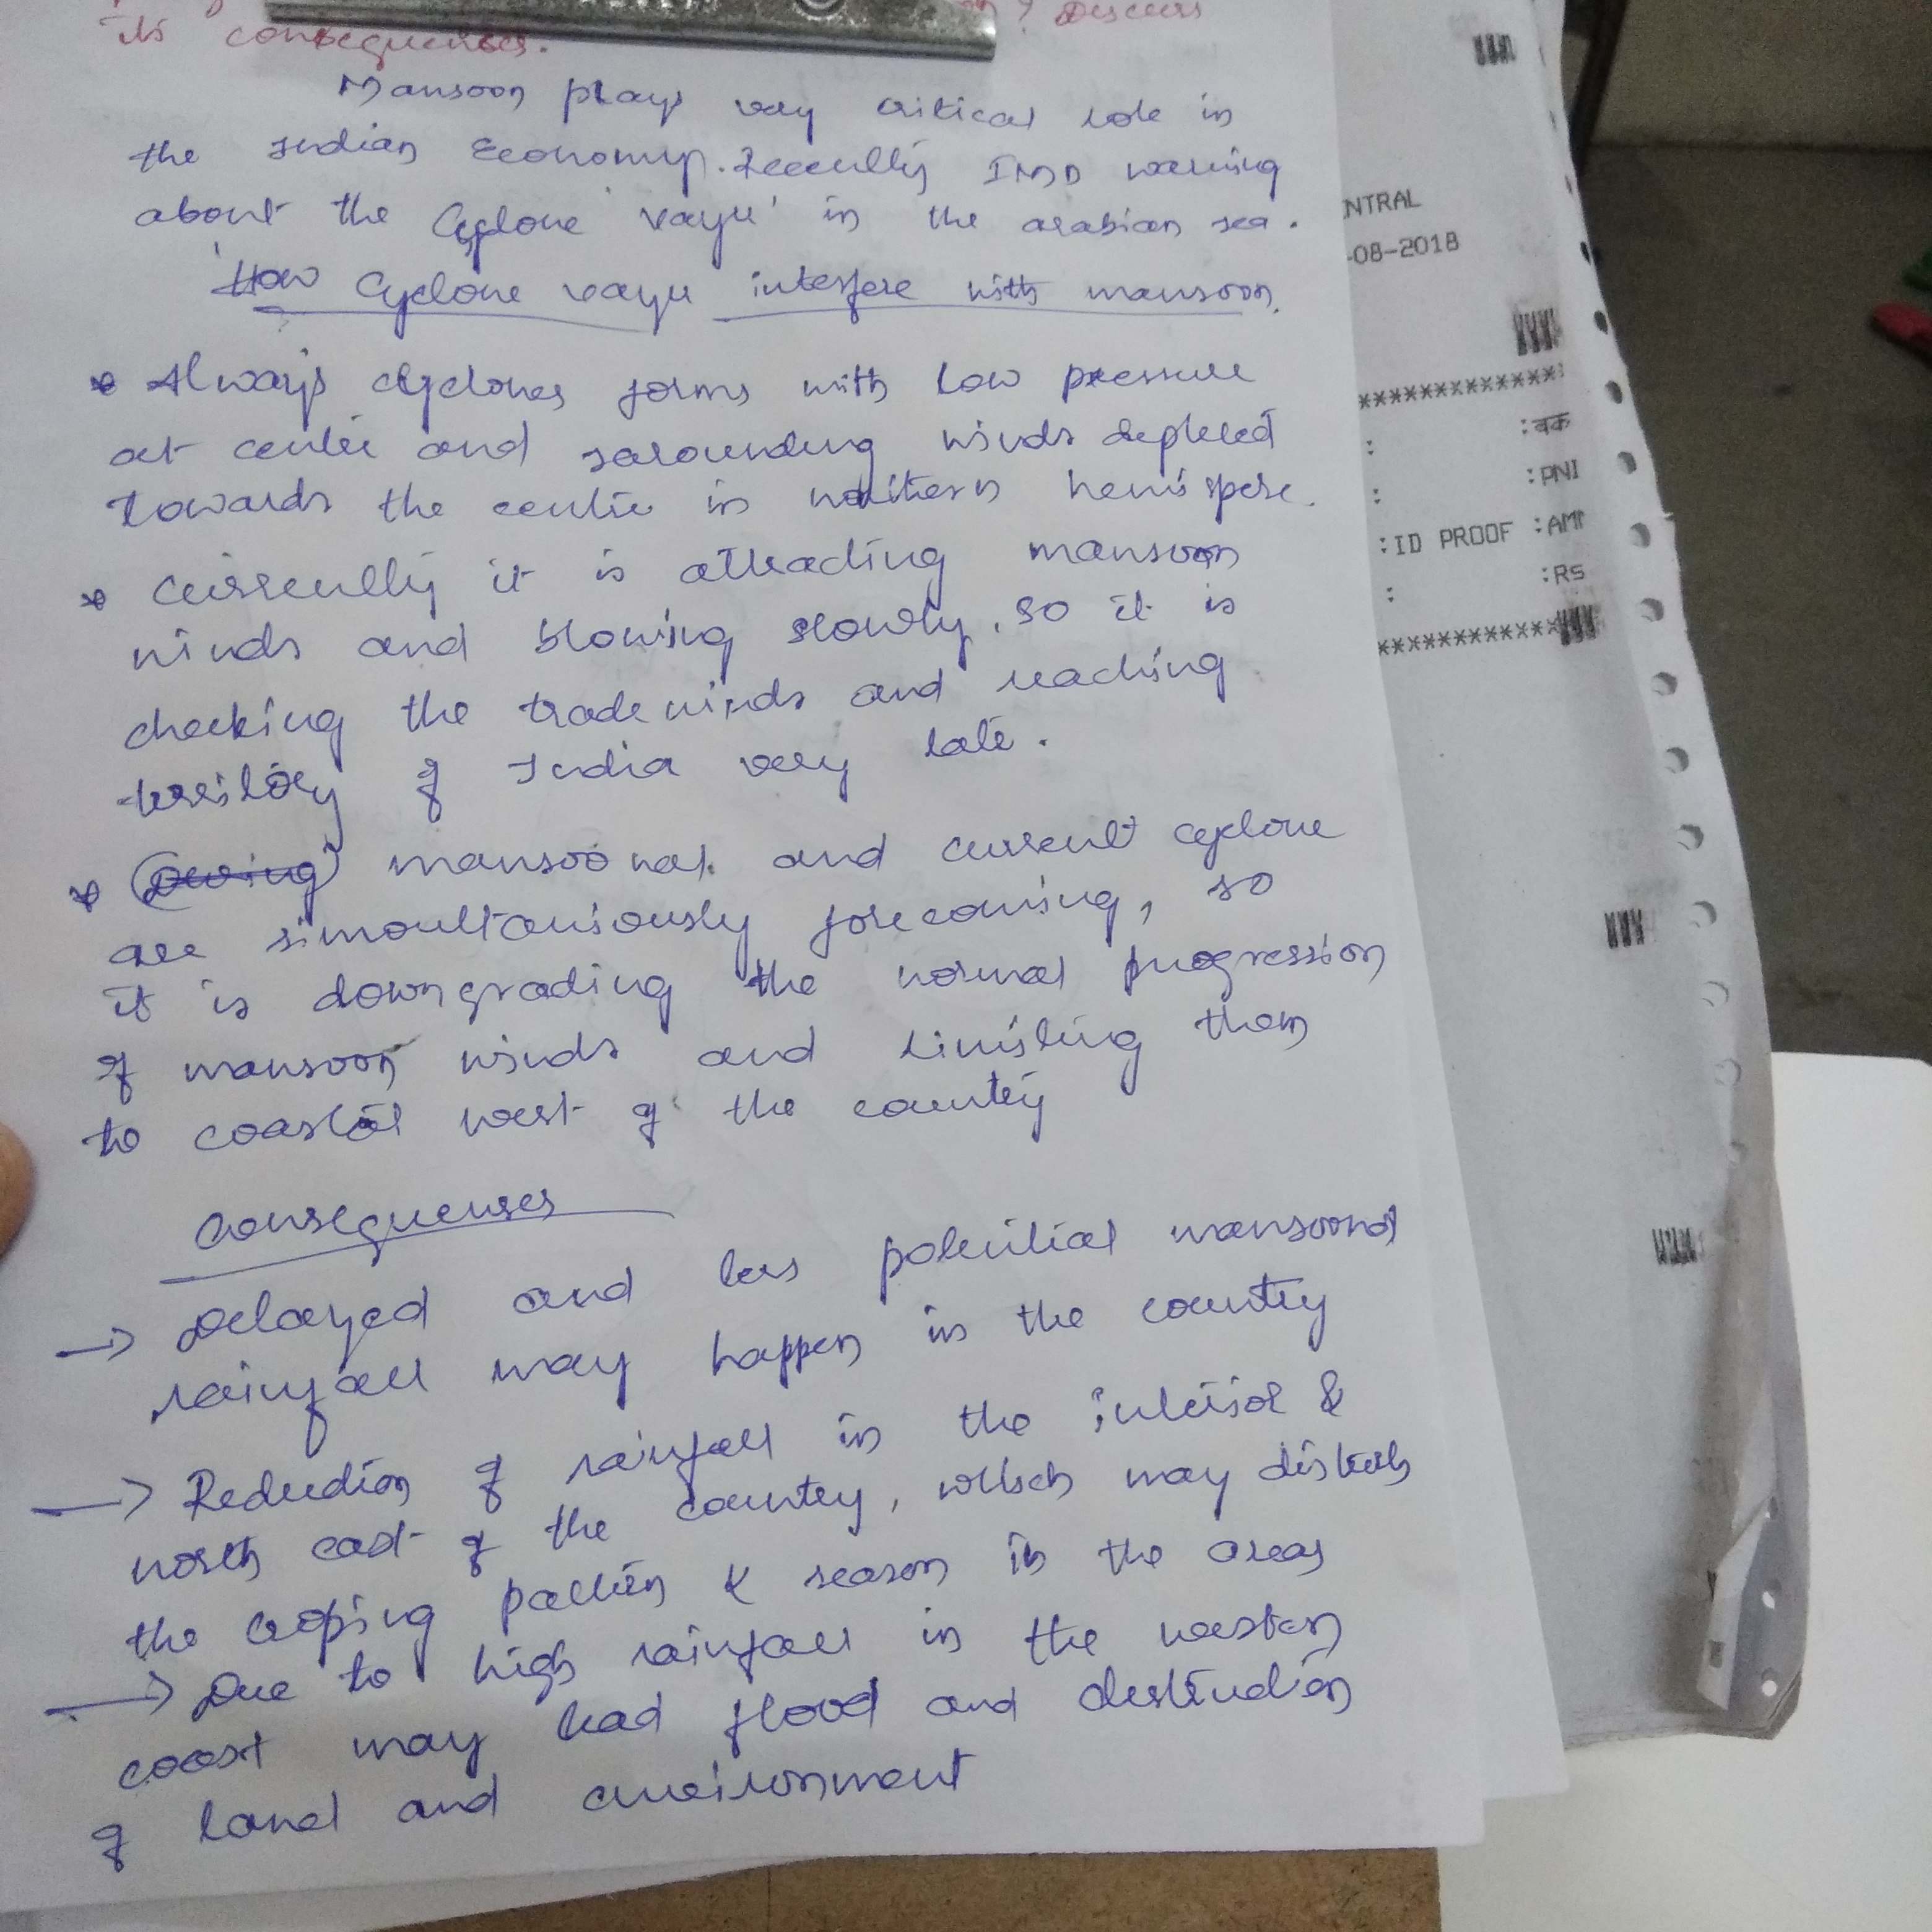 ? Discuss
its consequenses.
Mansoon plays very critical role in
the Indian Economy. Recently IMD warning
about the Cyclone 'vayu' in the arabian sea.
'How Cyclone vayu interfere with mansoon.
* Always cyclones forms with low pressure
at centre and sarounding winds depleted
towards the centre in northern hemispere.
* currently it is attracting mansoon
winds and blowing slowly, so it is
checking the trade winds and reaching
territory of India very late.
* mansoonal and current cyclone
are simoultaniously forecoming, so
it is downgrading the normal progression
of mansoon winds and limiting them
to coastal west of the country
Consequenses
→ Delayed and less potential mansoonal
rainfall may happen in the country
→ Reduction of rainfall in the interior &
north east of the country, which may disturb
the croping pattern & season in the areas
→ Due to high rainfall in the western
coast may lead flood and destruction
of land and environment
NTRAL
-08-2018
************
: :बक
: :PNI
:ID PROOF :AM
: :RS
************